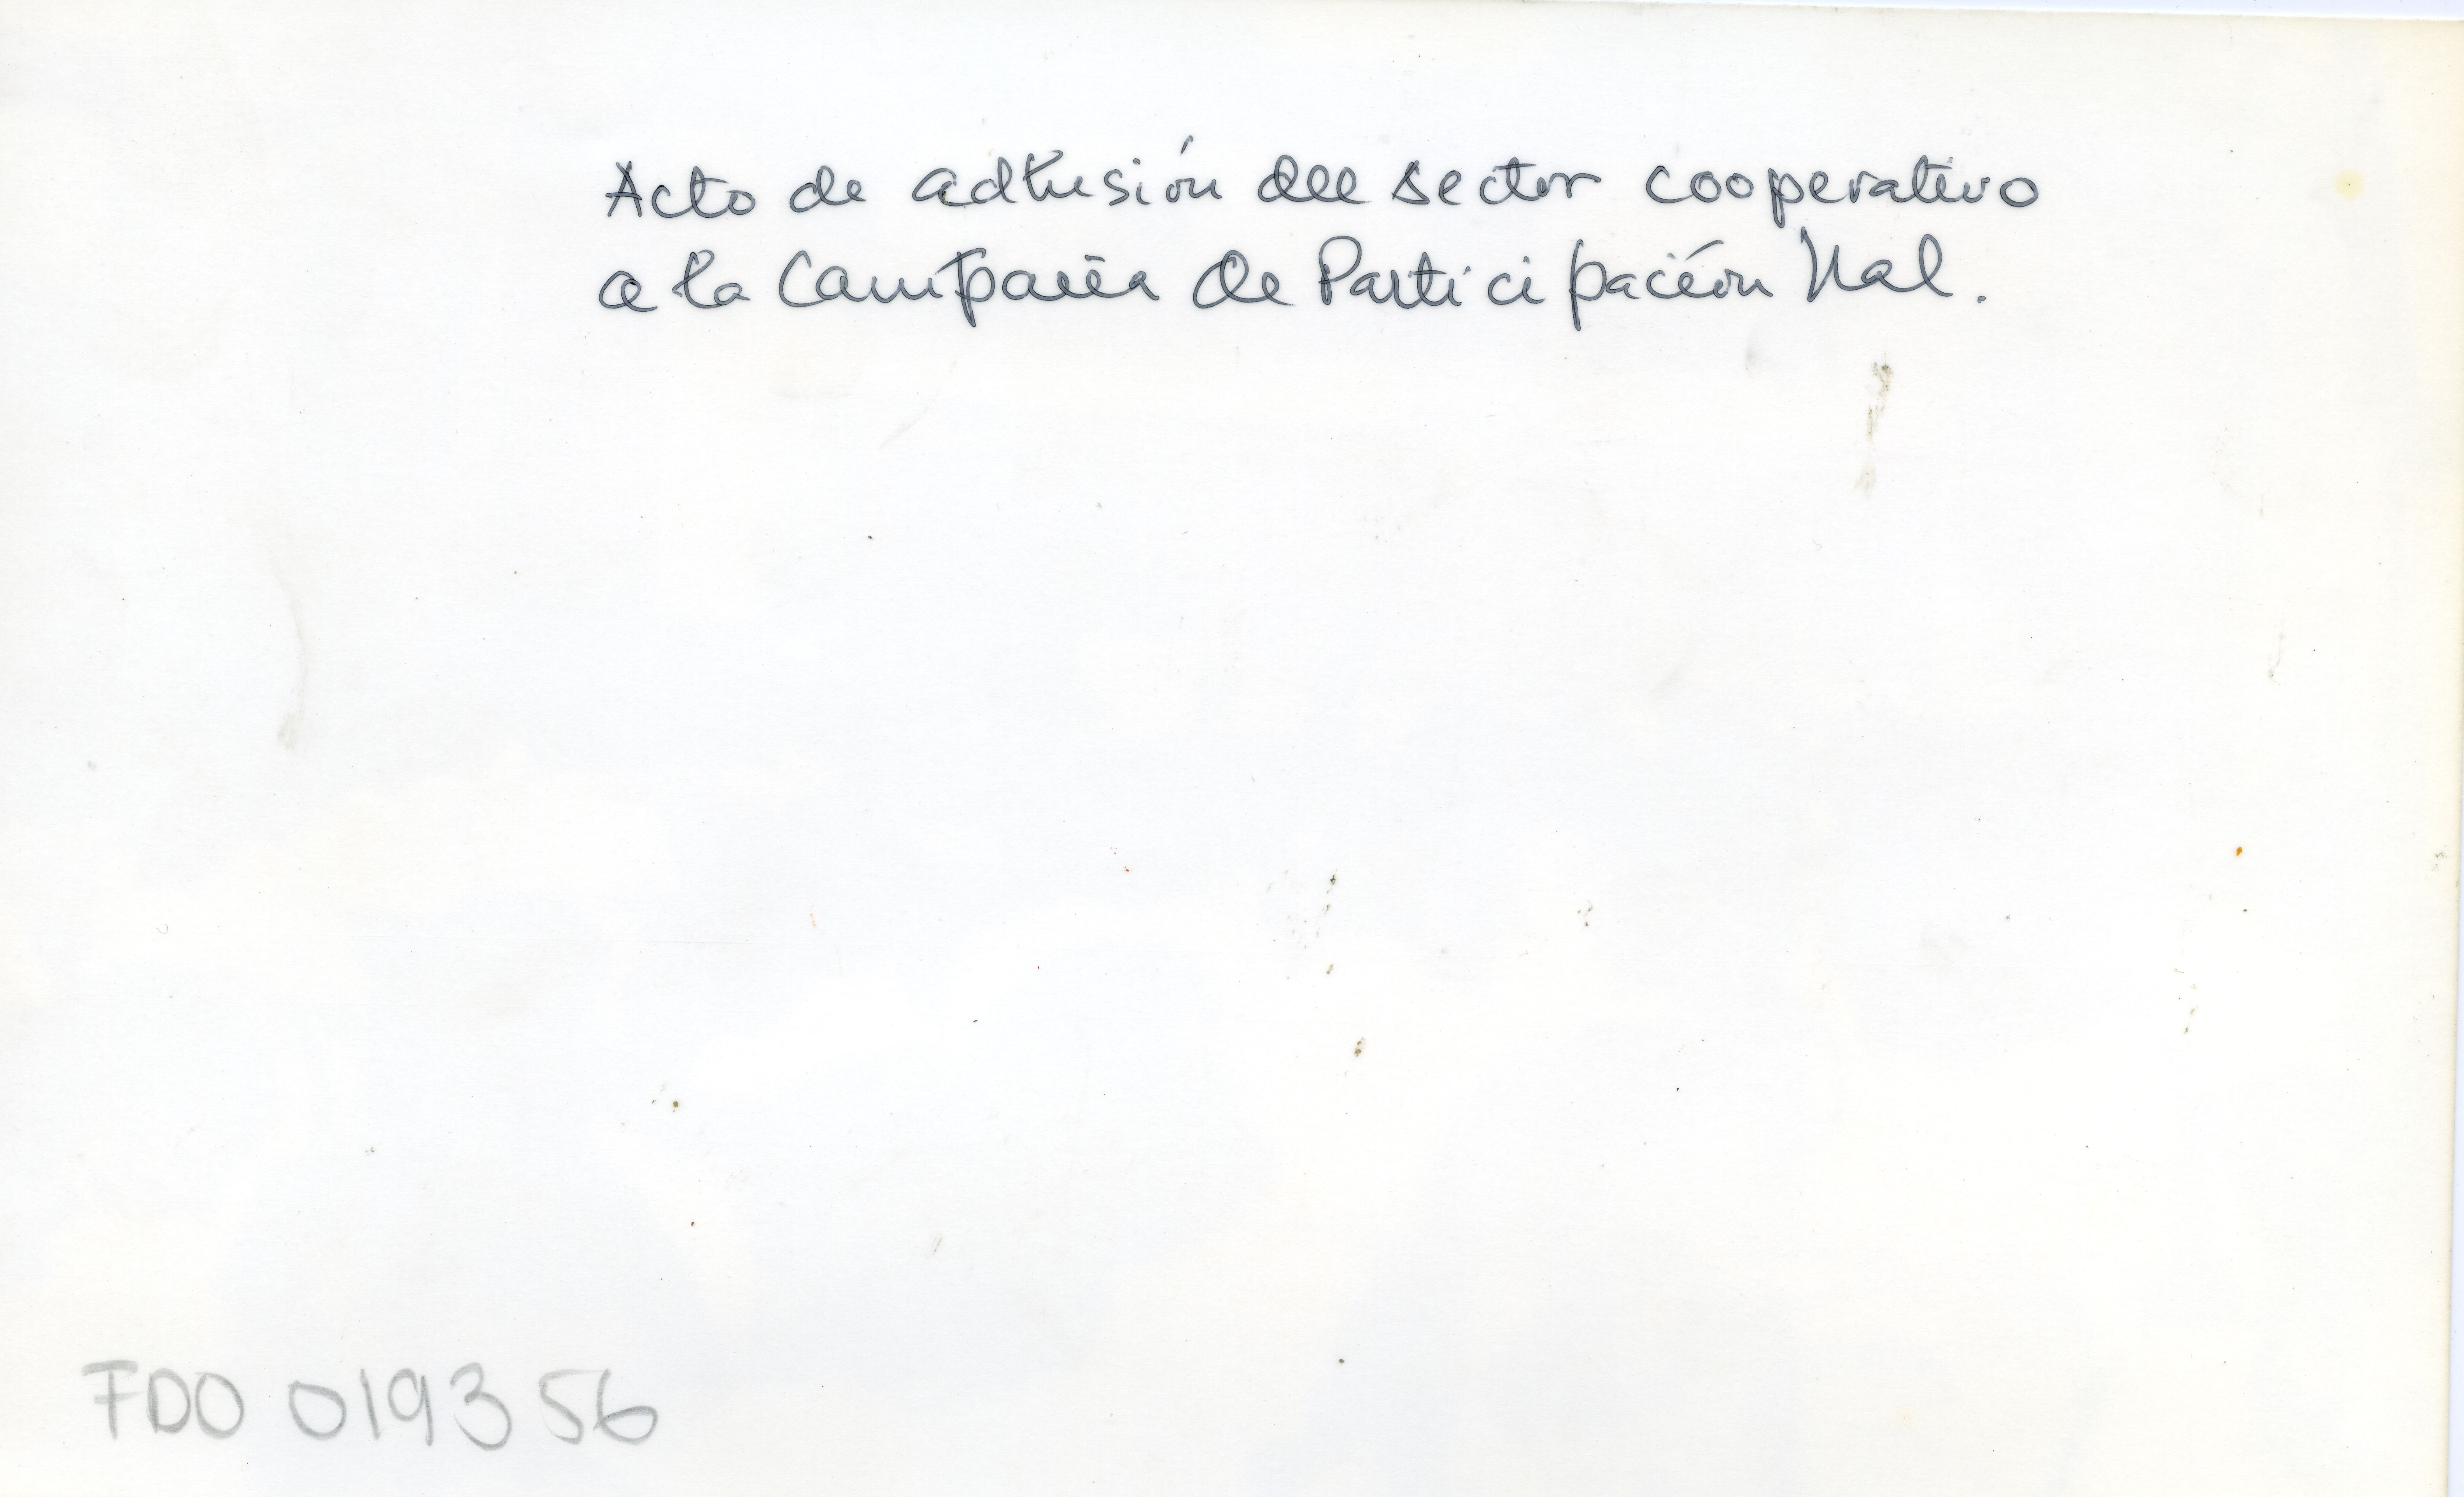 Acto de adhesión del sector cooperativo
a la Campaña de Participación Nal.
FDO 019356